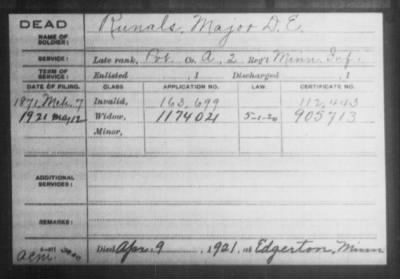 DEAD
NAME OF SOLDIER:
Runals, Major D. E.
SERVICE:
Late rank, Pvt. Co. A, 2 Reg't Minn. Inf.
TERM OF SERVICE:
Enlisted , 1 Discharged , 1
DATE OF FILING. CLASS APPLICATION NO. LAW. CERTIFICATE NO.
1871 Mch. 7 Invalid, 163,699 112,443
1921 May 12 Widow, 1174021 5-1-20 905713
Minor,
ADDITIONAL SERVICES:
REMARKS:
Died Apr. 9 , 1921, at Edgerton, Minn